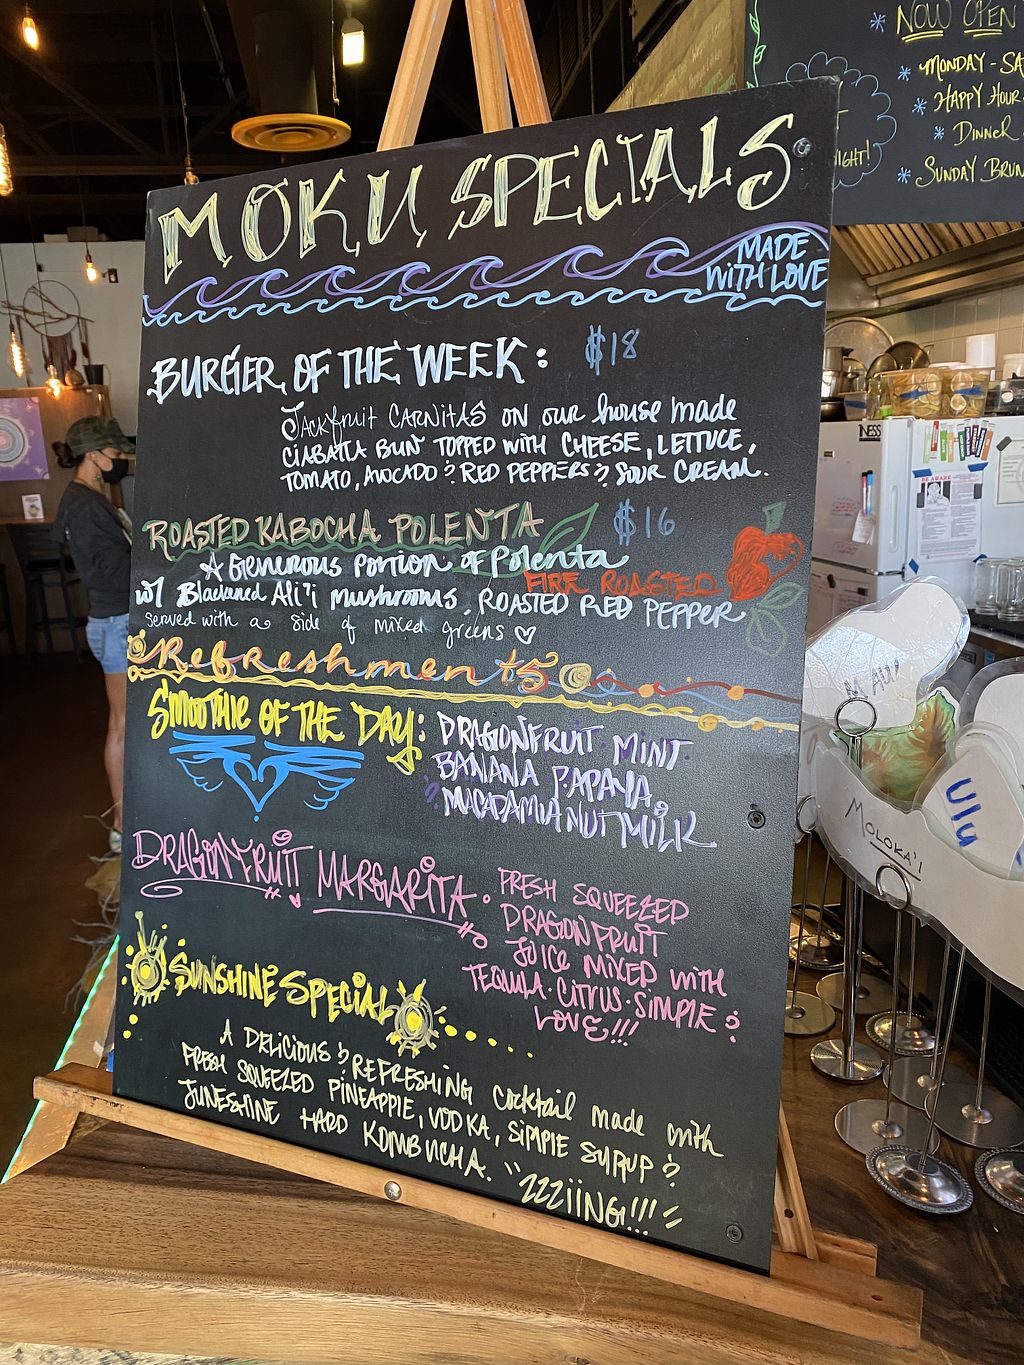 MOKU SPECIALS
MADE
WITH LOVE
BURGER OF THE WEEK: $18
JACKFRUIT CARNITAS ON OUR HOUSE MADE
CIABATTA BUN TOPPED WITH CHEESE, LETTUCE,
TOMATO, AVOCADO & RED PEPPERS & SOUR CREAM.
ROASTED KABOCHA POLENTA $16
A GENEROUS PORTION OF POLENTA
W/ Blackened Ali'i MUSHROOMS, FIRE ROASTED ROASTED RED PEPPER
Served with a side of mixed greens
Refreshments
SMOOTHIE OF THE DAY: DRAGONFRUIT MINT
BANANA PAPAYA
& MACADAMIA NUT MILK
DRAGONFRUIT MARGARITA: FRESH SQUEEZED
DRAGONFRUIT
JUICE MIXED WITH
TEQUILA·CITRUS·SIMPLE &
LOVE!!!
SUNSHINE SPECIAL
A DELICIOUS & REFRESHING COCKTAIL MADE WITH
FRESH SQUEEZED PINEAPPLE, VODKA, SIMPLE SYRUP &
JUNESHINE HARD KOMBUCHA. "ZZZIING!!!"
NOW OPEN
MONDAY - SA
HAPPY HOUR
DINNER
SUNDAY BRUN
IGHT!
BE AWARE
MAUI
MOLOKA'I
Ulu